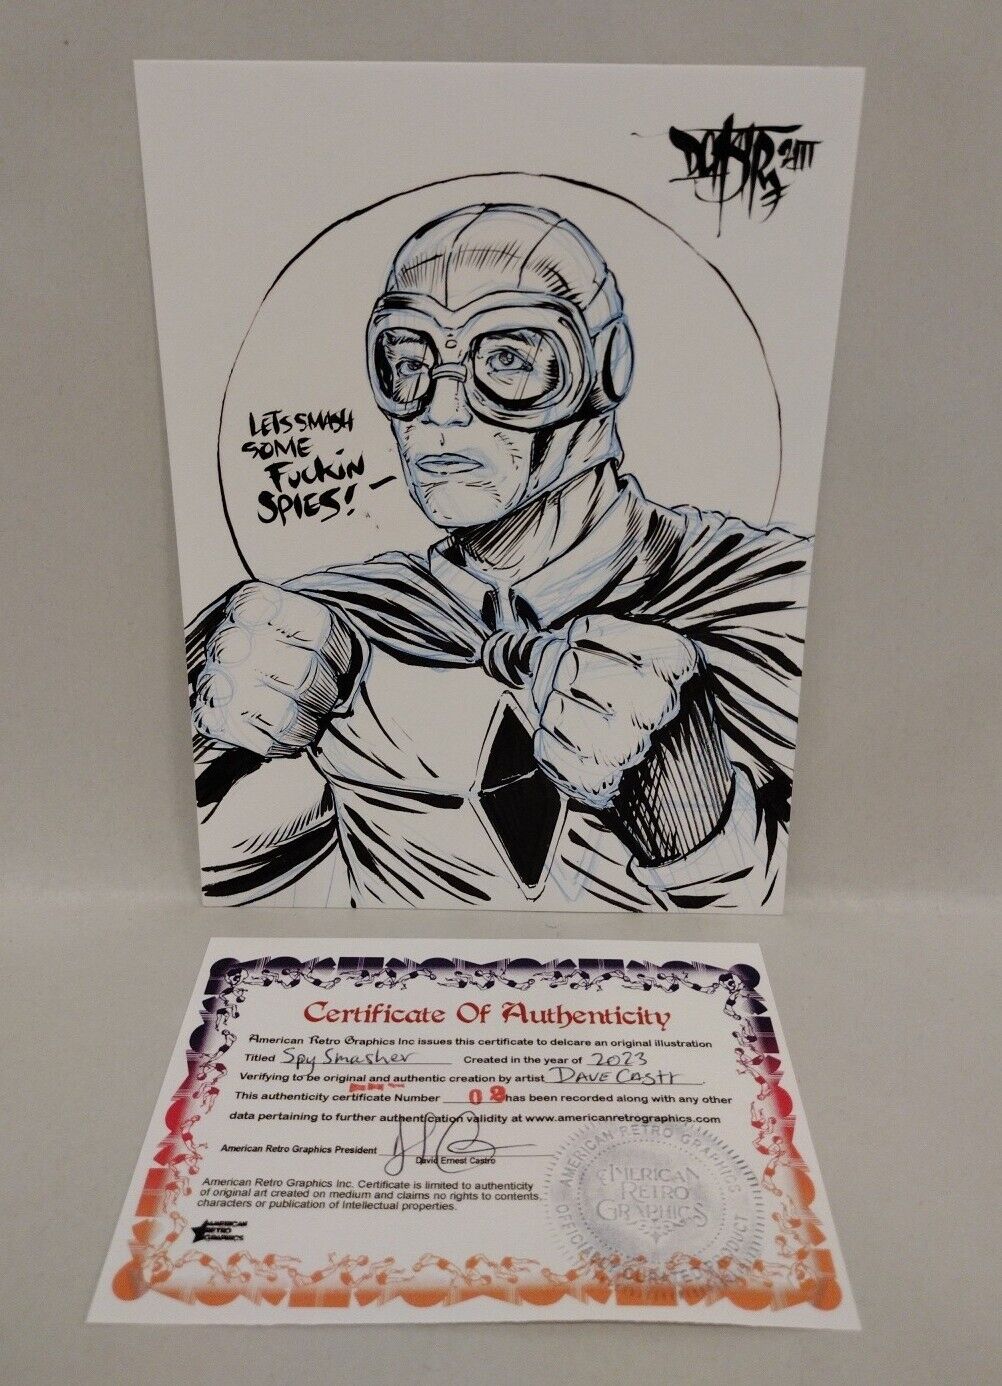 LETS SMASH
SOME
FUCKIN
SPIES!
Certificate Of Authenticity
American Retro Graphics Inc issues this certificate to delcare an original illustration
Titled Spy Smasher Created in the year of 2023
Verifying to be original and authentic creation by artist DAVE CASTR
This authenticity certificate Number 09 has been recorded along with any other
data pertaining to further authentication validity at www.americanretrographics.com
American Retro Graphics President
David Ernest Castro
American Retro Graphics Inc. Certificate is limited to authenticity
of original art created on medium and claims no rights to contents,
characters or publication of Intellectual properties.
AMERICAN
RETRO
GRAPHICS
AMERICAN RETRO GRAPHICS
AMERICAN
RETRO
GRAPHICS